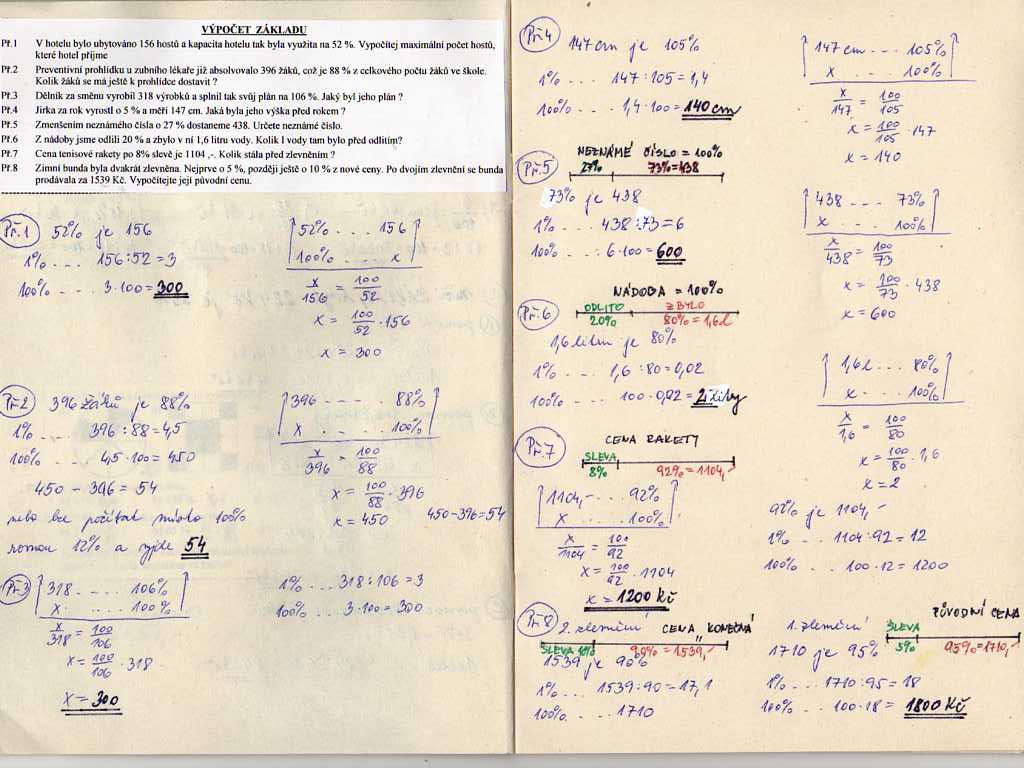 VÝPOČET ZÁKLADU
Př.1 V hotelu bylo ubytováno 156 hostů a kapacita hotelu tak byla využita na 52 %. Vypočítej maximální počet hostů,
které hotel přijme
Př.2 Preventivní prohlídku u zubního lékaře již absolvovalo 396 žáků, což je 88 % z celkového počtu žáků ve škole.
Kolik žáků se má ještě k prohlídce dostavit ?
Př.3 Dělník za směnu vyrobil 318 výrobků a splnil tak svůj plán na 106 %. Jaký byl jeho plán ?
Př.4 Jirka za rok vyrostl o 5 % a měří 147 cm. Jaká byla jeho výška před rokem ?
Př.5 Zmenšením neznámého čísla o 27 % dostaneme 438. Určete neznámé číslo.
Př.6 Z nádoby jsme odlili 20 % a zbylo v ní 1,6 litru vody. Kolik l vody tam bylo před odlitím?
Př.7 Cena tenisové rakety po 8% slevě je 1104 ,-. Kolik stála před zlevněním ?
Př.8 Zimní bunda byla dvakrát zlevněna. Nejprve o 5 %, později ještě o 10 % z nové ceny. Po dvojím zlevnění se bunda
prodávala za 1539 Kč. Vypočítejte její původní cenu.
Př.1 52% je 156
1% ... 156:52=3
100% .... 3·100=300
52% .... 156
100% .... x
x/156 = 100/52
x = 100/52 · 156
x = 300
Př.2 396 žáků je 88%
1% ... 396:88=4,5
100% ... 4,5·100=450
450 - 396 = 54
nebo lze počítat místo 100%
rovnou 12% a vyjde 54
396 .... 88%
x .... 100%
x/396 = 100/88
x = 100/88 · 396
x = 450
450-396=54
Př.3 318 .... 106%
x .... 100%
x/318 = 100/106
x = 100/106 · 318
x = 300
1% ... 318:106=3
100% ... 3·100=300
Př.4 147 cm je 105%
1% ... 147:105=1,4
100% ... 1,4·100=140cm
147cm ... 105%
x ... 100%
x/147 = 100/105
x = 100/105 · 147
x = 140
Př.5 NEZNÁMÉ ČÍSLO = 100%
27% 73%=438
73% je 438
1% ... 438:73=6
100% ... 6·100=600
438 ... 73%
x .... 100%
x/438 = 100/73
x = 100/73 · 438
x = 600
Př.6 NÁDOBA = 100%
ODLITO ZBYLO
20% 80%=1,6l
1,6 litru je 80%
1% ... 1,6:80=0,02
100% ... 100·0,02=2 litry
1,6l ... 80%
x .... 100%
x/1,6 = 100/80
x = 100/80 · 1,6
x = 2
Př.7 CENA RAKETY
SLEVA
8% 92%=1104,-
1104,- ... 92%
x .... 100%
x/1104 = 100/92
x = 100/92 · 1104
x = 1200 Kč
92% je 1104,-
1% ... 1104:92=12
100% .. 100·12=1200
Př.8 2. zlevnění CENA „KONEČNÁ"
SLEVA 10% 90%=1539,-
1539 je 90%
1% ... 1539:90=17,1
100% .... 1710
1. zlevnění PŮVODNÍ CENA
SLEVA
5% 95%=1710,-
1710 je 95%
1% ... 1710:95=18
100% ... 100·18=1800 Kč